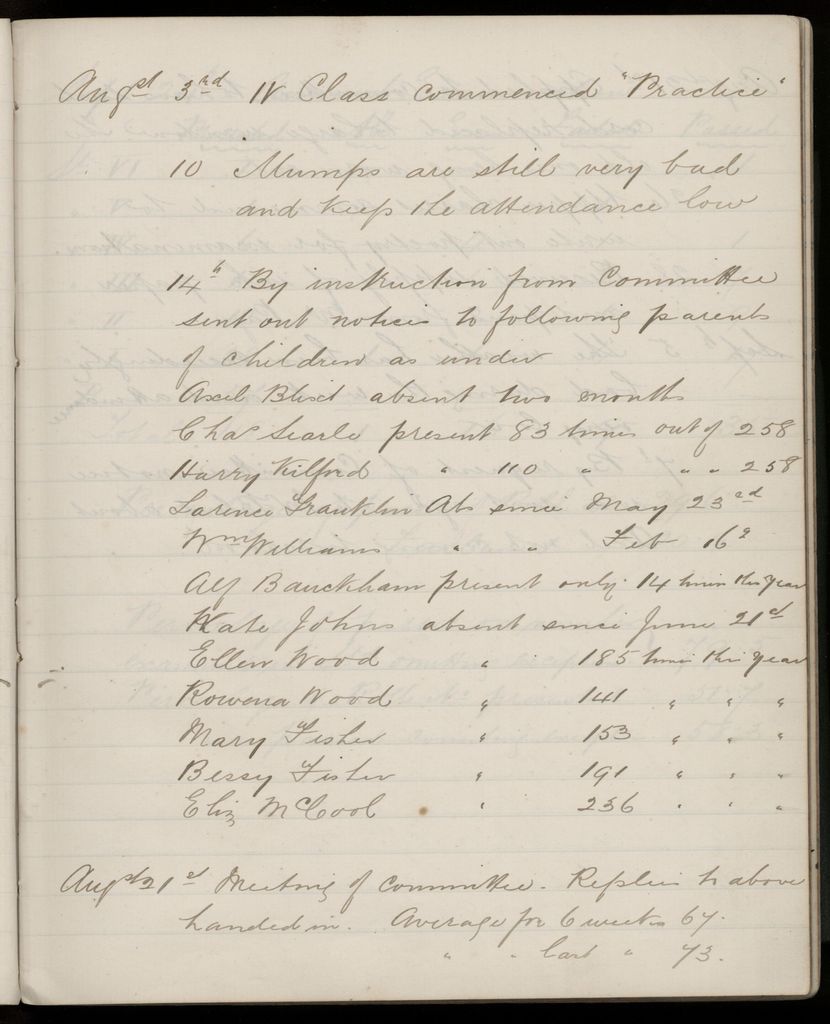 Augst 3rd IV Class commenced "Practice"
10 Mumps are still very bad
and keep the attendance low
14th By instruction from Committee
sent out notices to following parents
of children as under
Axel Blixt absent two months
Chas Searle present 83 times out of 258
Harry Kilford " 110 " " " 258
Larence Franklin Ab since May 23rd
Wm Williams " " Feb 16
Alf Bauckham present only 14 times this year
Kate Johns absent since June 21st
Ellen Wood " 185 times this year
Rowena Wood " 141 " " "
Mary Fisher " 153 " " "
Bessy Fisher " 191 " " "
Eliz McCool " 236 " " "
Augst 21st Meeting of Committee. Replies to above
handed in. Average for 6 weeks 67.
" " last " 73.